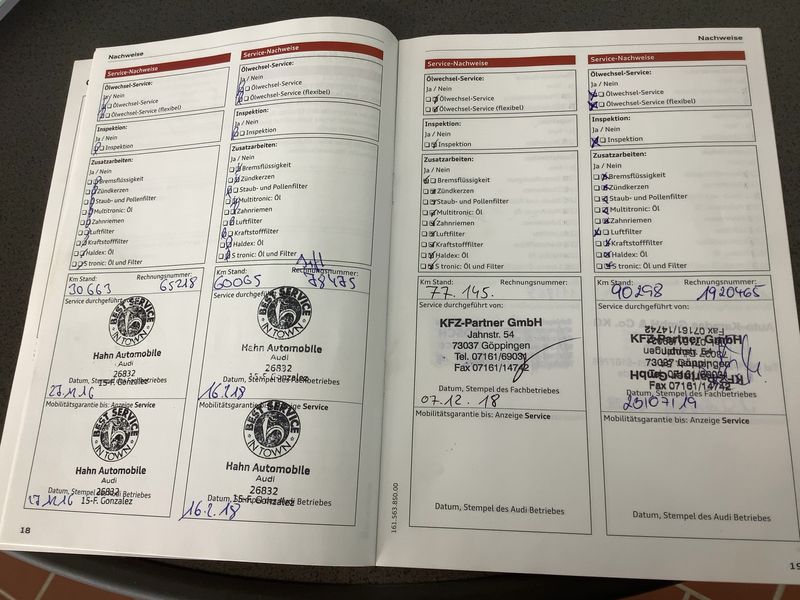 Nachweise
Service-Nachweise
Ölwechsel-Service:
Ja / Nein
Ölwechsel-Service
Ölwechsel-Service (flexibel)
Inspektion:
Ja / Nein
Inspektion
Zusatzarbeiten:
Ja / Nein
Bremsflüssigkeit
Zündkerzen
Staub- und Pollenfilter
Multitronic: Öl
Zahnriemen
Luftfilter
Kraftstofffilter
Haldex: Öl
S tronic: Öl und Filter
Km Stand: Rechnungsnummer:
30663 65218
Service durchgeführt
BEST SERVICE
IN TOWN
Hahn Automobile
Audi
26832
15-F. Gonzalez
Datum, Stempel des Fachbetriebes
Mobilitätsgarantie bis: Anzeige Service
BEST SERVICE
IN TOWN
Hahn Automobile
Audi
26832
Datum, Stempel des Audi Betriebes
15-F. Gonzalez
18
Service-Nachweise
Ölwechsel-Service:
Ja / Nein
Ölwechsel-Service
Ölwechsel-Service (flexibel)
Inspektion:
Ja / Nein
Inspektion
Zusatzarbeiten:
Ja / Nein
Bremsflüssigkeit
Zündkerzen
Staub- und Pollenfilter
Multitronic: Öl
Zahnriemen
Luftfilter
Kraftstofffilter
Haldex: Öl
S tronic: Öl und Filter
Km Stand: Rechnungsnummer:
60065 78475
Service durchgeführt
BEST SERVICE
IN TOWN
Hahn Automobile
Audi
26832
15-F. Gonzalez
Datum, Stempel des Fachbetriebes
Mobilitätsgarantie bis: Anzeige Service
BEST SERVICE
IN TOWN
Hahn Automobile
Audi
26832
Datum, Stempel des Audi Betriebes
15-F. Gonzalez
16.2.18
Nachweise
Service-Nachweise
Ölwechsel-Service:
Ja / Nein
Ölwechsel-Service
Ölwechsel-Service (flexibel)
Inspektion:
Ja / Nein
Inspektion
Zusatzarbeiten:
Ja / Nein
Bremsflüssigkeit
Zündkerzen
Staub- und Pollenfilter
Multitronic: Öl
Zahnriemen
Luftfilter
Kraftstofffilter
Haldex: Öl
S tronic: Öl und Filter
Km Stand: Rechnungsnummer:
77.145.
Service durchgeführt von:
KFZ-Partner GmbH
Jahnstr. 54
73037 Göppingen
Tel. 07161/69031
Fax 07161/14742
Datum, Stempel des Fachbetriebes
07.12.18
Mobilitätsgarantie bis: Anzeige Service
Datum, Stempel des Audi Betriebes
161.563.850.00
Service-Nachweise
Ölwechsel-Service:
Ja / Nein
Ölwechsel-Service
Ölwechsel-Service (flexibel)
Inspektion:
Ja / Nein
Inspektion
Zusatzarbeiten:
Ja / Nein
Bremsflüssigkeit
Zündkerzen
Staub- und Pollenfilter
Multitronic: Öl
Zahnriemen
Luftfilter
Kraftstofffilter
Haldex: Öl
S tronic: Öl und Filter
Km Stand: Rechnungsnummer:
90298 1920465
Service durchgeführt von:
KFZ-Partner GmbH
Jahnstr. 54
73037 Göppingen
Fax 07161/14742
Datum, Stempel des Fachbetriebes
Mobilitätsgarantie bis: Anzeige Service
Datum, Stempel des Audi Betriebes